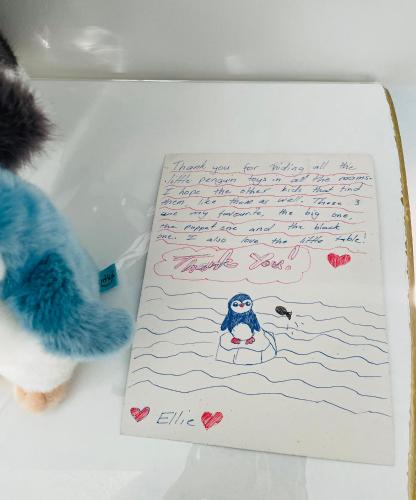 Thank you for hiding all the
little penguin toys in all the rooms.
I hope the other kids that find
them like them as well. These 3
are my favourite, the big one,
the puppet one and the black
one. I also love the little table!
Thank You!
Ellie